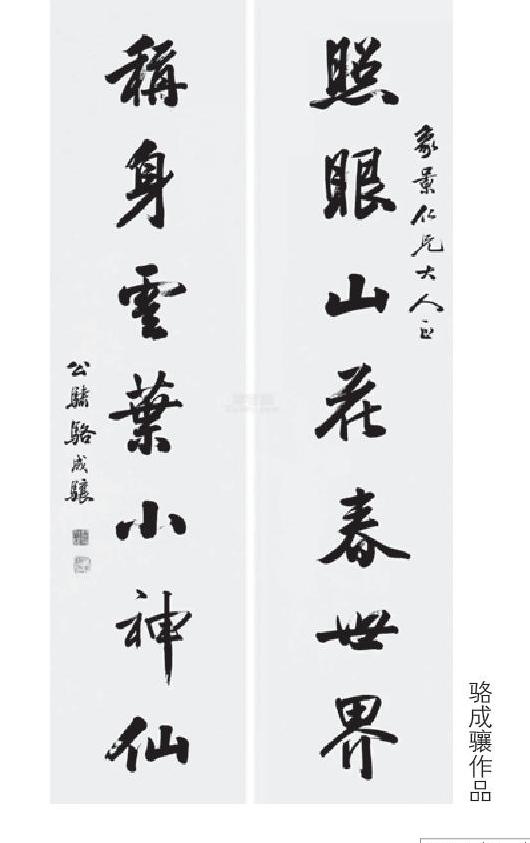 象景仁兄大人正
照眼山花春世界
稱身雲葉小神仙
公驌骆成驤
骆成骧作品